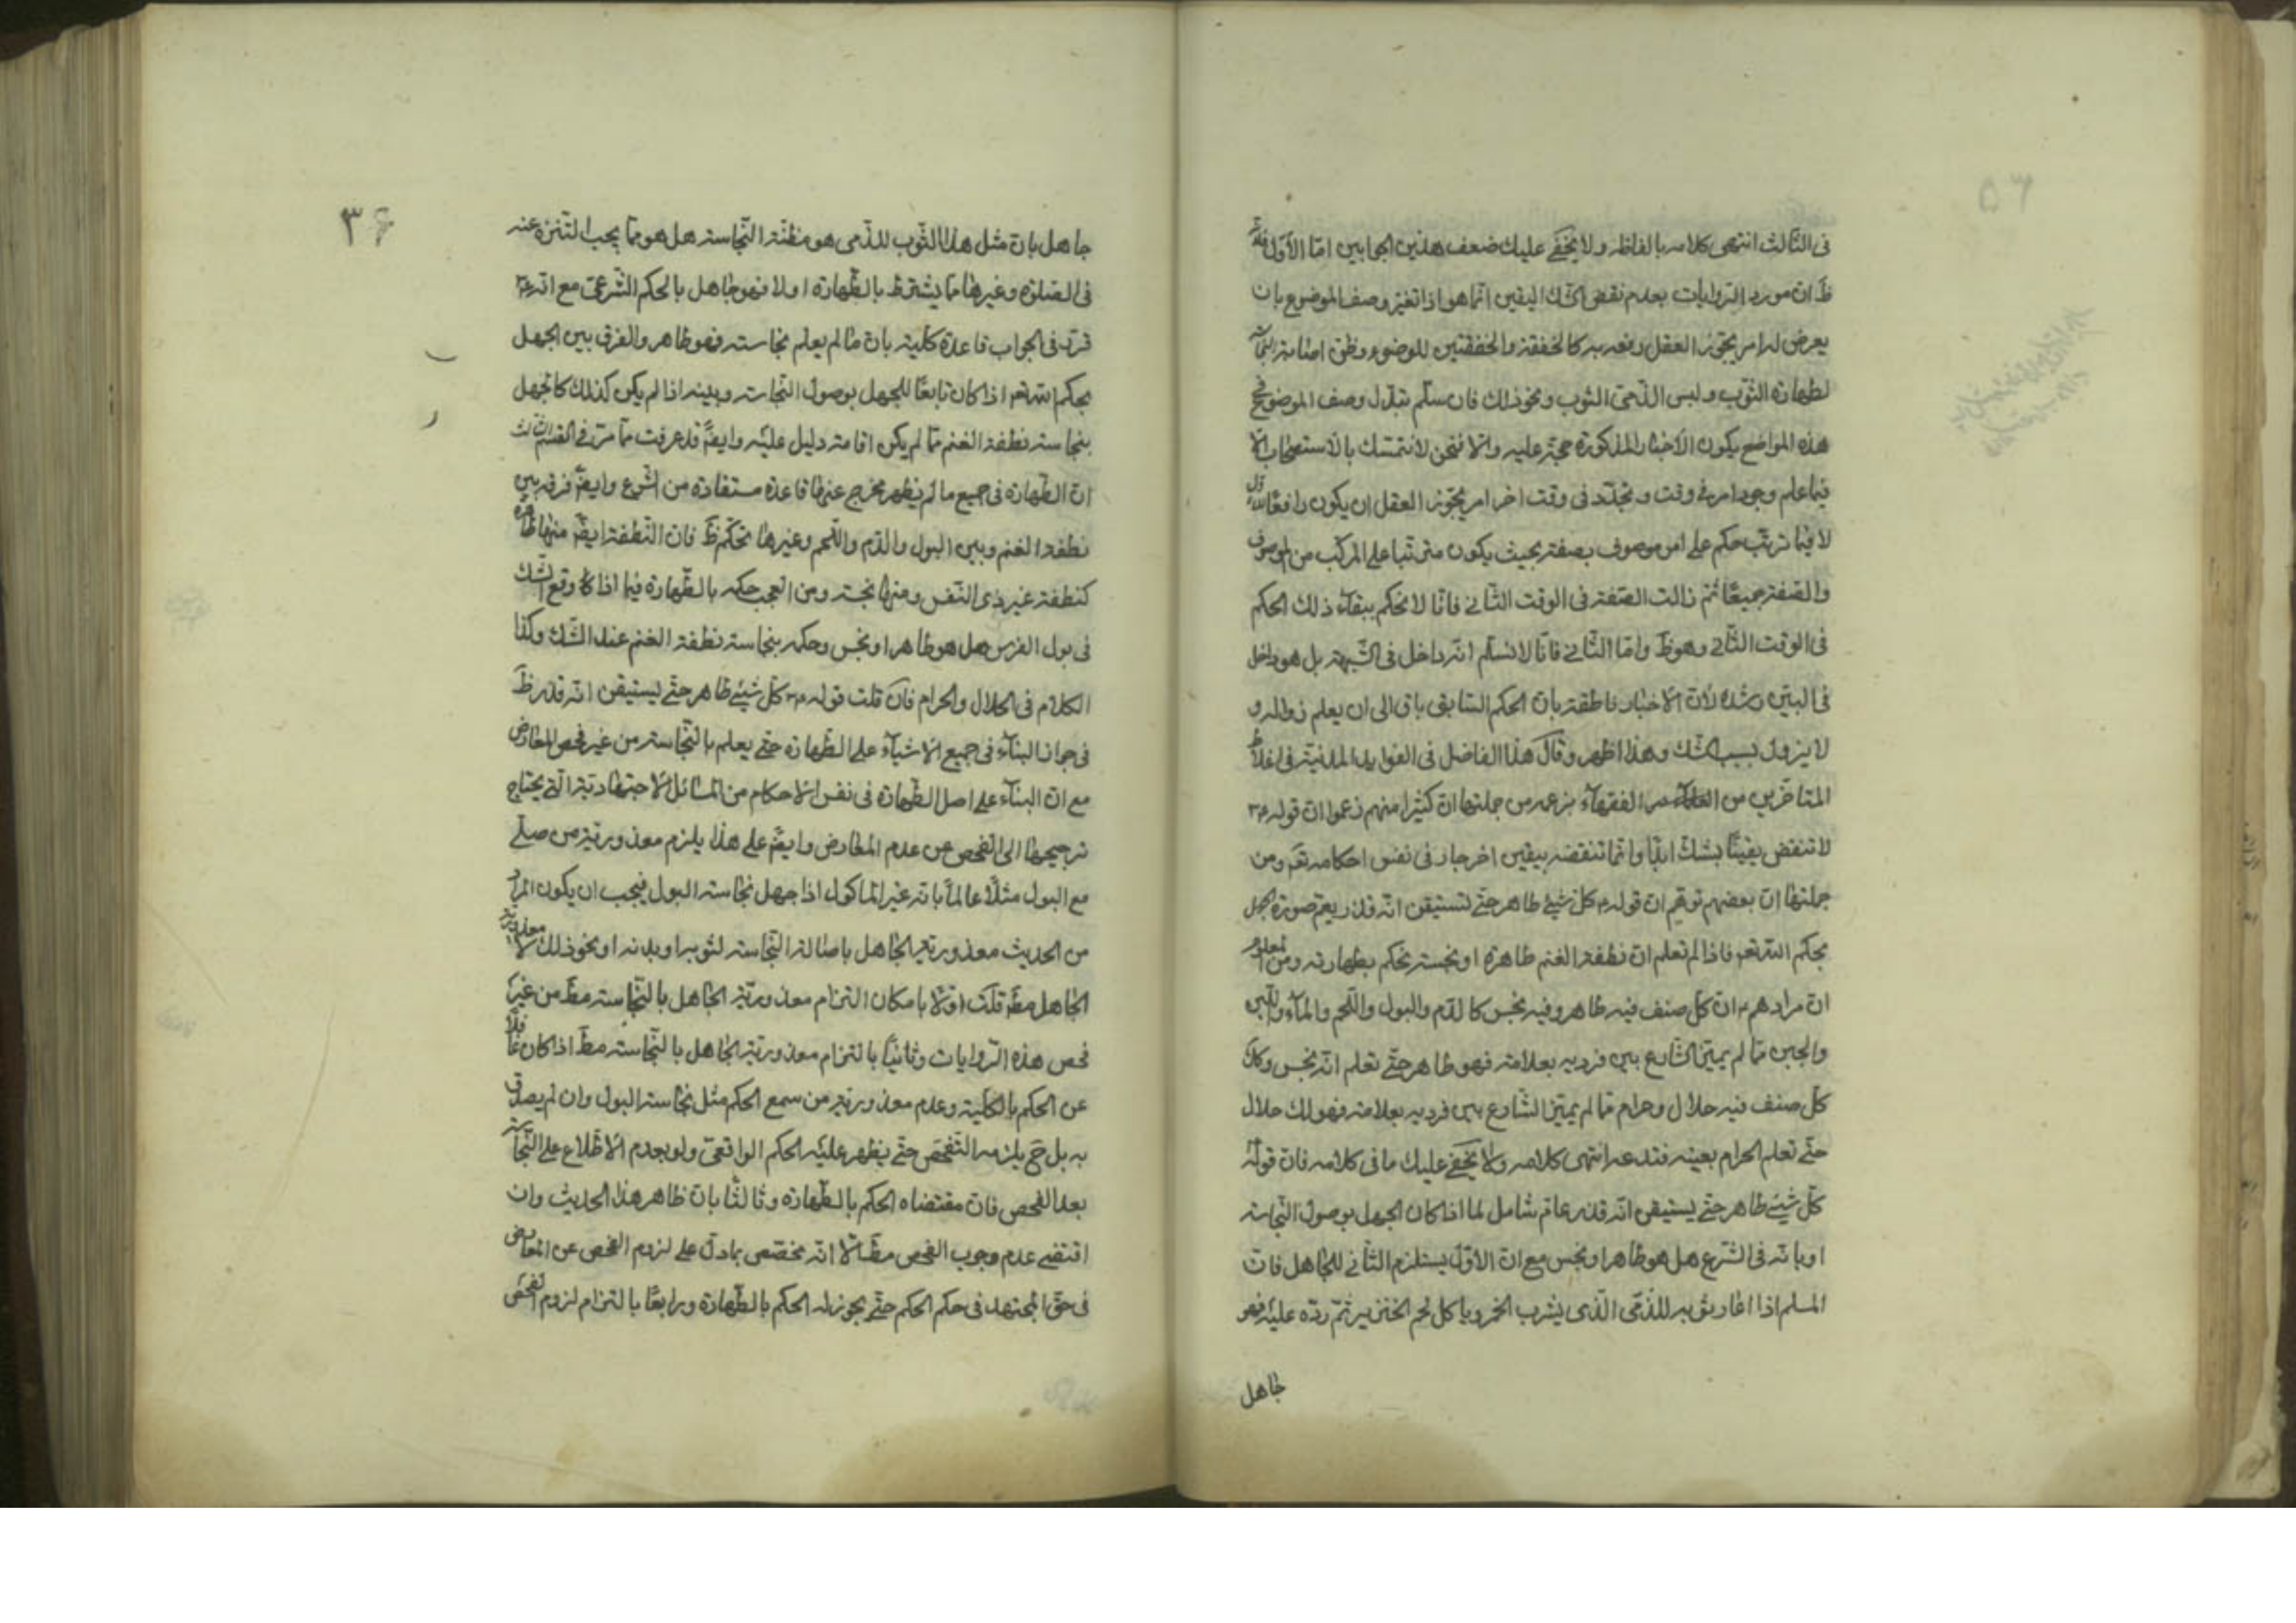 فى الثالث انتهى كلامه بالفاظه ولا يخفى عليك ضعف هذين الجوابين امّا الأوّل فلانّه
ظ ان مورد الروايات بعدم نقض الشك اليقين انّما هو اذا تغيّر وصف الموضوع بان
يعرض له امر يجوّز العقل رفعه به كالخفقة والخفقتين للوضوء وظنّ اصابة النجاسة
لطهارة الثوب ولبس الذّمّى الثوب ونحو ذلك فان سلّم تبدّل وصف الموضوع فى
هذه المواضع يكون الأخبار المذكورة حجّة عليه والّا فنحن لا نتمسّك بالاستصحاب الّا
فيما علم وجود امر فى وقت وتجدّد فى وقت اخر امر يجوّز العقل ان يكون رافعًا للاول
لا فيما ترتّب حكم على امر موصوف بصفة بحيث يكون مترتّبا على المركّب من الموصوف
والصّفة جميعًا ثمّ زالت الصّفة فى الوقت الثّانى فانّا لا نحكم ببقاء ذلك الحكم
فى الوقت الثّانى وهو ظ وامّا الثّانى فانّا لا نسلّم انّه داخل فى الشّبهة بل هو داخل
فى البيّن رشده لانّ الاخبار ناطقة بانّ الحكم السّابق باق الى ان يعلم زواله و
لا يزول بسبب الشّك وهذا اظهر وقال هذا الفاضل فى الفوايد المدنيّة فى اغلاط
المتاخّرين من الفقهآء بزعمه من جملتها انّ كثيرا منهم زعموا ان قوله ع م
لا تنقض يقينًا بشكّ ابدًا وانّما تنقضه بيقين اخر جار فى نفس احكامه تعَ ومن
جملتها انّ بعضهم توهّم ان قوله ع كل شىء طاهر حتّى تستيقن انّه قذر يعمّ صورة الجهل
بحكم اللّه تعَ فاذا لم تعلم ان نطفة الغنم طاهرة او نجسة نحكم بطهارته ومن المعلوم
انّ مرادهم ع انّ كلّ صنف فيه طاهر وفيه نجس كالدّم والبول واللّحم والمآء واللّبن
والجبن ممّا لم يميّز الشّارع بين فرديه بعلامة فهو طاهر حتّى تعلم انّه نجس وكك
كلّ صنف فيه حلال وحرام ممّا لم يميّز الشّارع بين فرديه بعلامة فهو لك حلال
حتّى تعلم الحرام بعينه فتدعه انتهى كلامه ولا يخفى عليك ما فى كلامه فان قوله
كلّ شىء طاهر حتّى يستيقن انّه قذر عامّ شامل لما اذا كان الجهل بوصول النّجاسة
او بانّه فى الشّرع هل هو طاهر او نجس مع انّ الاوّل يستلزم الثّانى للجاهل فانّ
المسلم اذا اعار ثوبه للذّمّى الّذى يشرب الخمر وياكل لحم الخنزير ثمّ ردّه عليه فهو
جاهل
جاهل بانّ مثل هذا الثّوب للذّمى هو مظنّة النّجاسة هل هو ممّا يجب التّنزه عنه
فى الصّلوة وغيرها ممّا يشترط بالطّهارة او لا فهو جاهل بالحكم الشّرعىّ مع انّه ع م
قرّر فى الجواب قاعدة كليّة بانّ ما لم يعلم نجاسته فهو طاهر والفرق بين الجهل
بحكم اللّه تعَ اذا كان تابعًا للجهل بوصول النّجاسة وبينه اذا لم يكن كذلك كالجهل
بنجاسة نطفة الغنم ممّا لم يكن اقامة دليل عليه وايضًا قد عرفت ممّا مرّ فى القسم الثالث
انّ الطّهارة فى جميع ما لم يظهر مخرج عنها قاعدة مستفادة من الشّرع وايضًا فرقه بين
نطفة الغنم وبين البول والدّم واللّحم وغيرها تحكّم ظ فانّ النّطفة ايضًا منها طاهرة
كنطفة غير ذى النّفس ومنها نجسة ومن العجب حكمه بالطّهارة فيما اذا وقع الشّك
فى بول الفرس هل هو طاهر او نجس وحكمه بنجاسة نطفة الغنم عند الشّك وكذا
الكلام فى الحلال والحرام فان قلت قوله ع م كلّ شىء طاهر حتّى يستيقن انّه قذر ظ
فى جواز البنآء فى جميع الاشيآء على الطّهارة حتّى يعلم بالنّجاسة من غير فحص للمعارض
مع انّ البنآء على اصل الطّهارة فى نفس الاحكام من المسائل الاجتهاديّة الّتى يحتاج
ترجيحها الى الفحص عن عدم المعارض وايضًا على هذا يلزم معذوريّة من صلّى
مع البول مثلًا عالمًا بانّه غير الماكول اذا جهل نجاسة البول فيجب ان يكون المراد
من الحديث معذوريّة الجاهل باصابة النّجاسة لثوبه او بدنه او نحو ذلك لا معذورية
الجاهل مط قلت اوّلا بامكان التزام معذوريّة الجاهل بالنّجاسة مط من غير
فحص هذه الرّوايات وثانيًا بالتزام معذوريّة الجاهل بالنّجاسة مط اذا كان غافلًا
عن الحكم بالكليّة وعدم معذوريّة من سمع الحكم مثل نجاسة البول وان لم يصدق
به بل ح يلزمه التّفحّص حتّى يظهر عليه الحكم الواقعى ولو بعدم الاطّلاع على النّجاسة
بعد الفحص فان مقتضاه الحكم بالطّهارة وثالثًا بانّ ظاهر هذا الحديث وان
اقتضى عدم وجوب الفحص مط الّا انّه مخصّص بما دلّ على لزوم الفحص عن المعارض
فى حقّ المجتهد فى حكم الحكم حتّى يجوز له الحكم بالطّهارة ورابعًا بالتزام لزوم الفحص